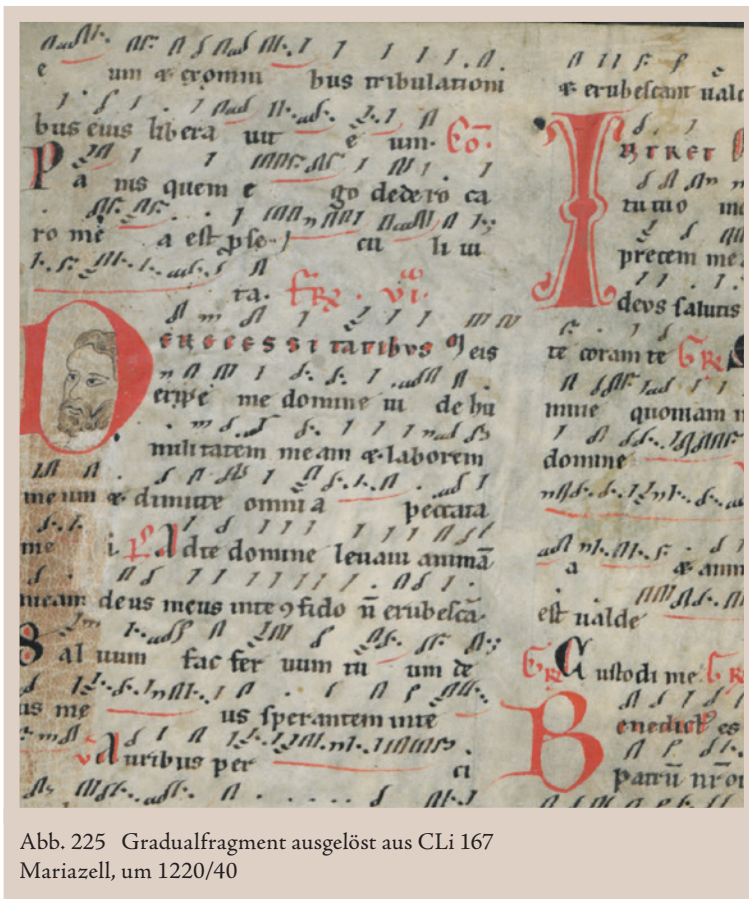 e um & exomni bus tribulationi
bus eius libera uit e um. Co.
Pa nis quem e go dedero ca
ro me a est ꝑ se cu li ui
ta. vi.
DE NECESSITATIBVS meis
eripe me domine ui de hu
militatem meam & laborem
meum & dimitte omnia peccata
me i. Ps. Adte domine leuaui animā
meam deus meus inte ↄfido n̄ erubescā.
Sal uum fac ser uum tu um de
us me us sperantem inte
Auribus per ci
& erubescant uald
INTRET
tu tuo
precem me
deus salutis
te coram te Gr
mine quoniam
domine
a & anim
est ualde
Gr Custodi me Gr
Benedict es
patrū nr̄or
Abb. 225 Gradualfragment ausgelöst aus CLi 167
Mariazell, um 1220/40